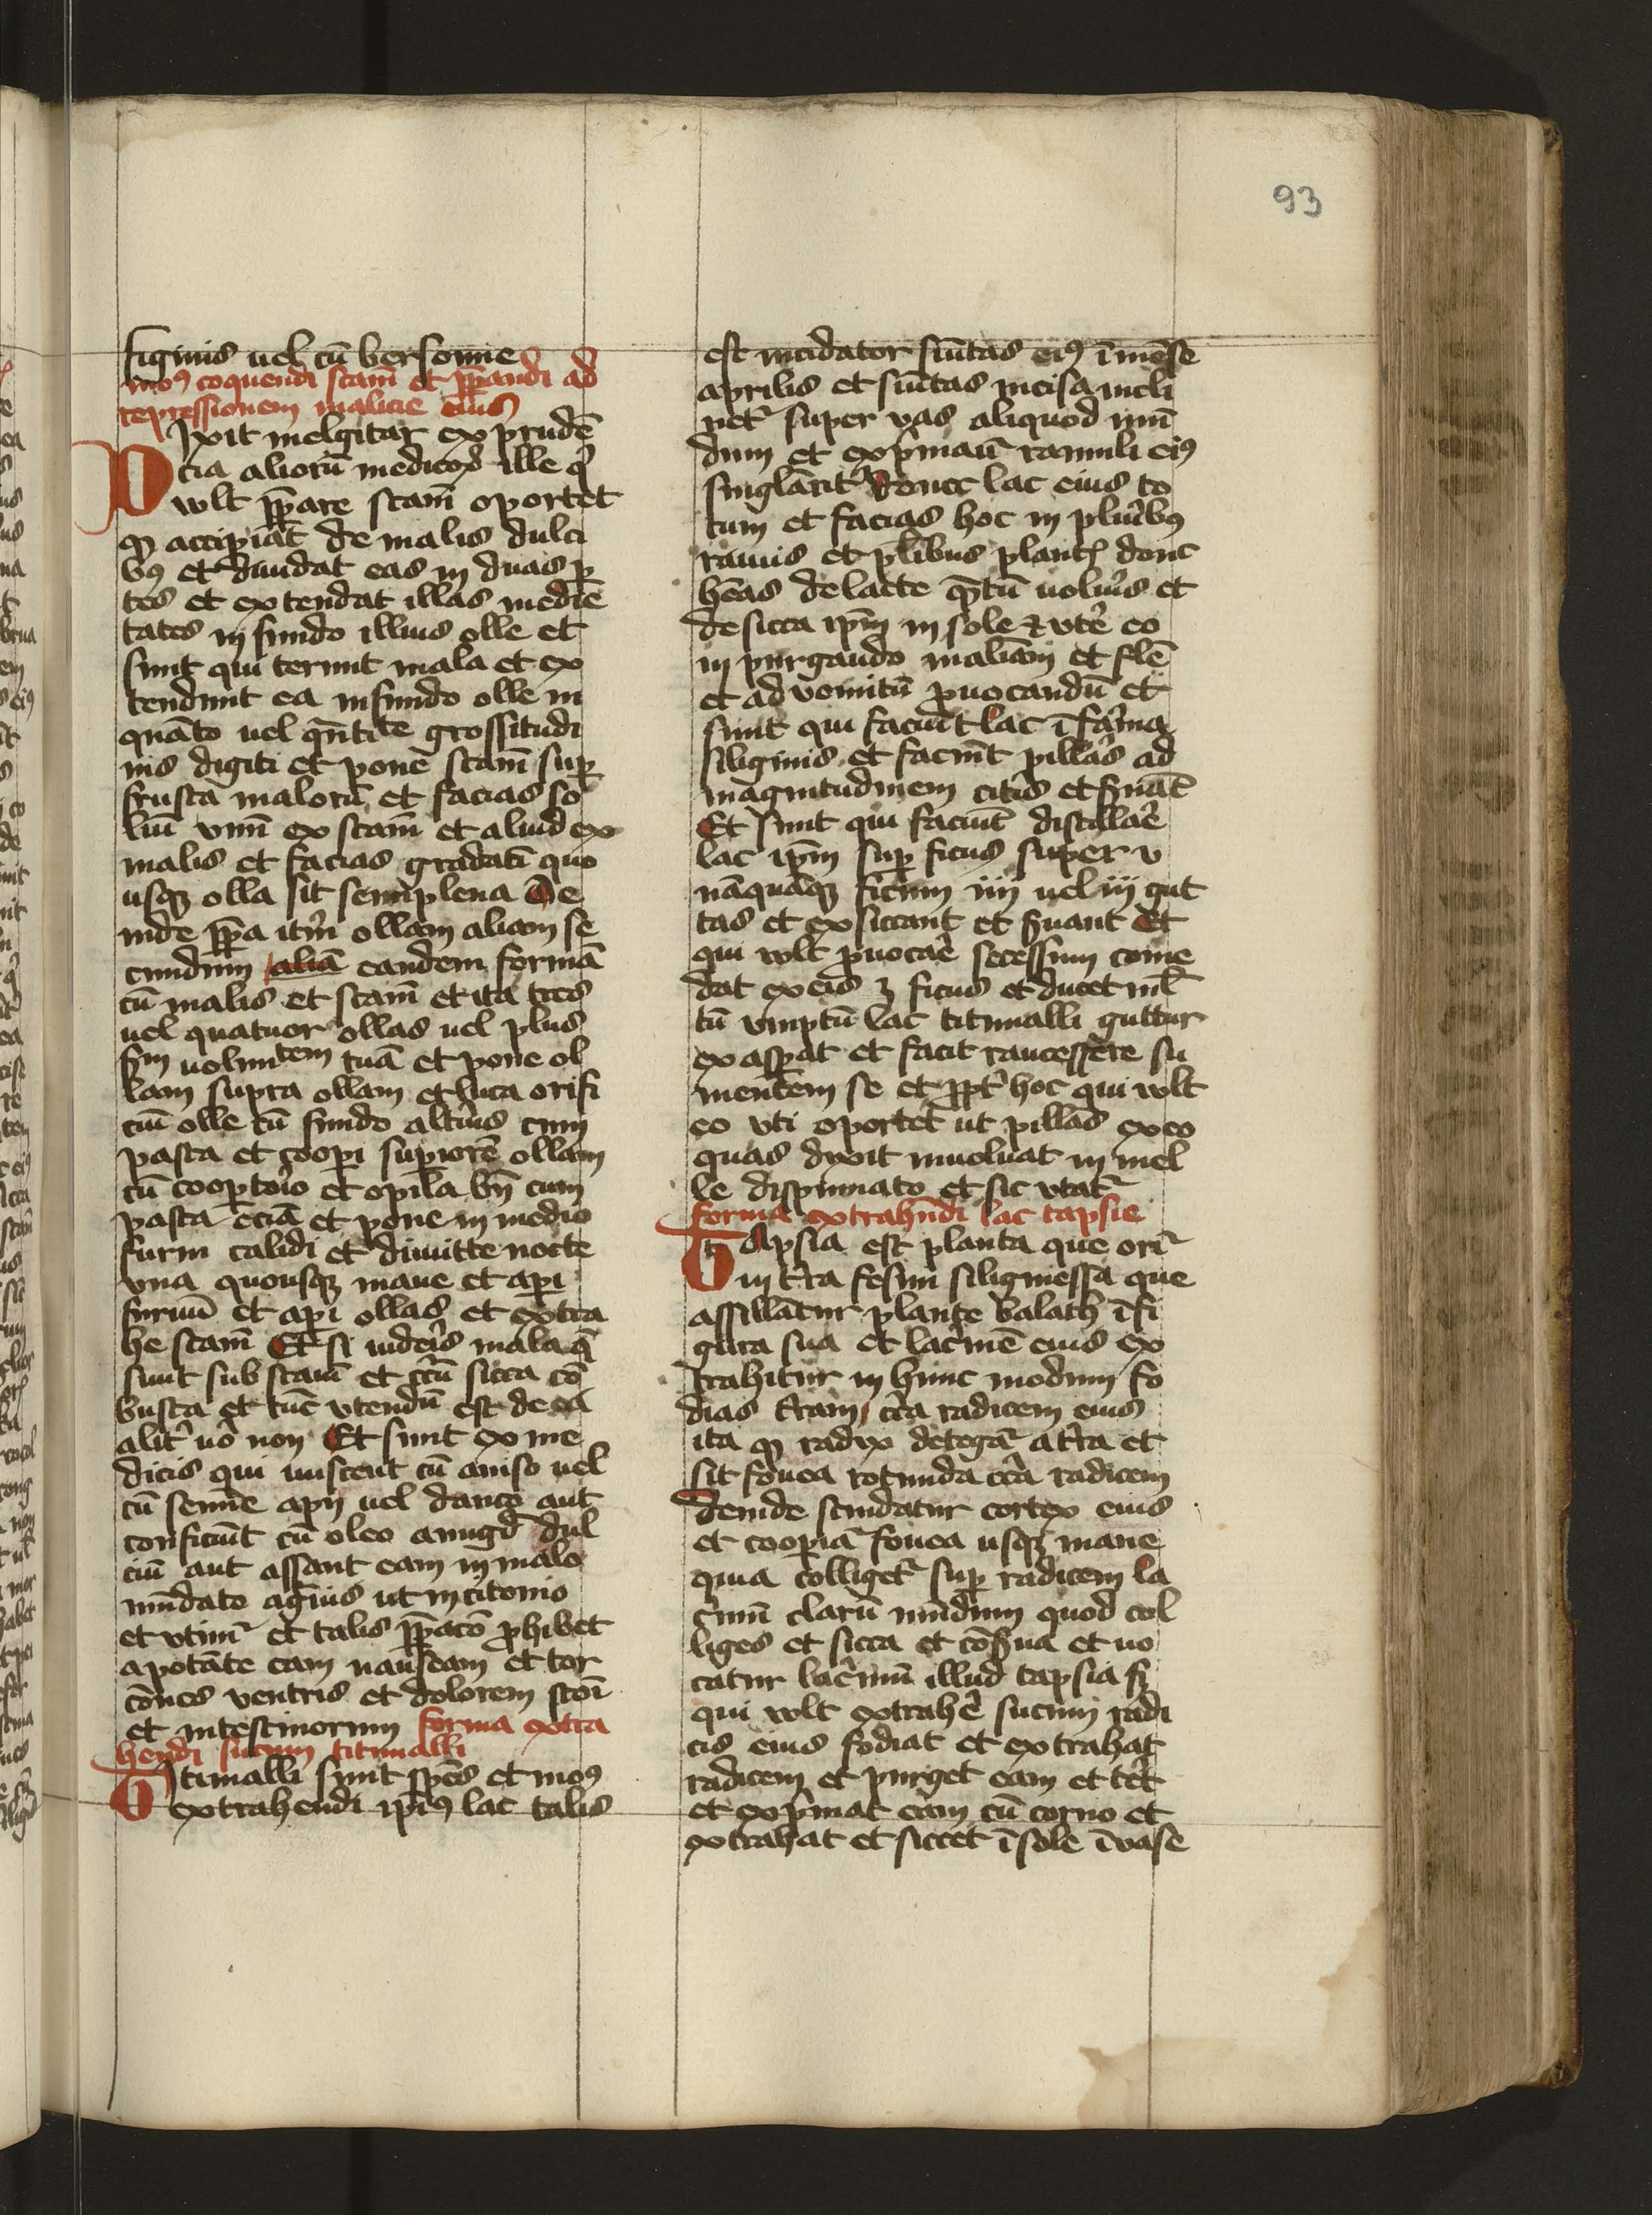 93
figinis uel cū bersonne
mo⁹ coquendi scam̄ et p̄pandi ad
repressionem malicie eius
Dixit melgitar ex prudē
cia aliorū medicoꝝ ille qͥ
wlt p̄pare scam̄ oportet
ꝙ accipiat de malis dulci
b⁹ et diuidat eas in duas ꝑ
tes et extendat illas medie
tates in fundo illius olle et
sunt qui terunt mala et ex
tendunt ea in fundo olle in
quāto uel qn̄tite grossitudi
nis digiti et pone scam̄ suꝑ
frusta malorū et facias so
liū vnū ex scam̄ et aliud ex
malis et facias gradatī quo
usqꝫ olla sit semiplena De
inde p̄pa itm̄ ollam aliam se
cundum aliā eandem formā
cū malis et scam̄ et ita tres
uel quatuor ollas uel plus
sm̄ uoluntem tuā et pone ol
lam supra ollam et luta orifi
ciū olle cū fundo altius cum
pasta et cooꝑi supiorē ollam
cū cooptoīo et opila bn̄ cum
pasta eciā et pone in medio
furni calidi et dimitte nocte
vna quousqꝫ mane et aꝑi
furnū et aꝑi ollas et extra
he scam̄ Et si uideis mala q̄
sunt sub scam̄ et cͥcū sicca cō
busta et tūc vtendū est de ea
alit̄ uo non Et sunt ex me
dicis qui miscent cū aniso uel
cū semine apij uel dauco aut
conficiūt cū oleo amigd̄ dul
ciū aut assant eam in malo
mūdato agͥius ut in citonio
et vtimr̄ et talis p̄paco ꝓhibet
a potāte eam nauseam et tor
cōnes ventris et dolorem stoī
et intestinorum forma extra
hendi sucum titimalli
Titimalli sunt sp̄es et mo⁹
extrahendi ip̄i⁹ lac talis
est incidator sūitas ei⁹ ī mēse
aprilis et sūitas incisa incli
net̄ super vas aliquod mū
dum et expͥmāt ramuli ei⁹
singlarit̄ donec lac eius to
tum et facias hoc in pluͥb⁹
ramis et plͥibus plantꝭ donc
hēas de lacte qͣtū uolūis et
desicca ip̄m in sole et vtē eo
in purgando malīam et fle
et ad vomitū ꝓuocandū et
sunt qui faciūt lac ī faͥna
siliginis et faciūt pillas ad
magnitudinem citis et fūāt
Et sunt qui faciūt distillaē
lac ip̄m suꝑ ficus super v
nāquāqꝫ ficum iiij uel iij gut
tas et exsiccant et fuant Et
qui wlt ꝓuocaē secessum come
dat ex eis ȝ ficus et ducet ml̄
tū vmptū lac titimalli guttur
exasꝑat et facit raucessere su
mentem se et ꝓpt̄ hoc qui wlt
eo vti oportet ut pillas ex eo
quas dixit inuoluat in mel
le dispumato et sic vtat̄
forma extrahendi lac tapsie
Tapsia est planta que orit̄
in tͥra fesim siligmessa que
assillatur plante balach ī fi
gura sua et lacͥmē eius ex
trahitur in hunc modum fo
dias tͥram cͥca radicem eius
ita ꝙ radix detegat̄ a tͥra et
sit fouea rotunda cͥca radicem
deinde scindatur cortex eius
et cooꝑiat̄ fouea usqꝫ mane
quia colliget̄ suꝑ radicem la
cͥmū clarū mūdum quod col
liges et sicca et cōfua et uo
catur lacͥmū illud tapsia sꝫ
qui wlt extrahē sucum radi
cis eius fodiat et extrahat
radicem et purget eam et tet̄
et expͥmat eam cū torno et
extrahat et siccet ī sole ī vase